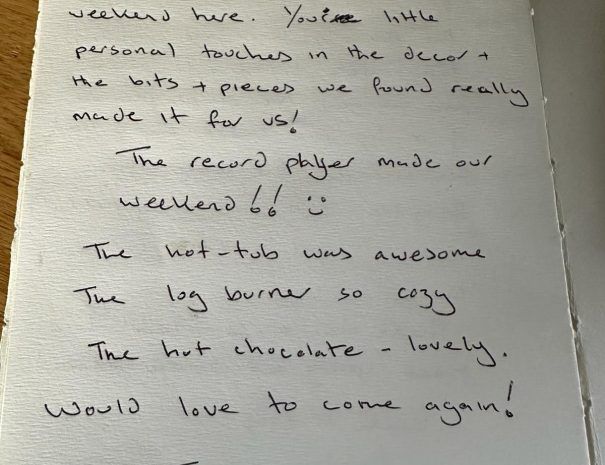 weekend here. Your little
personal touches in the decor +
the bits + pieces we found really
made it for us!
The record player made our
weekend!! :)
The hot-tub was awesome
The log burner so cozy
The hot chocolate - lovely.
Would love to come again!